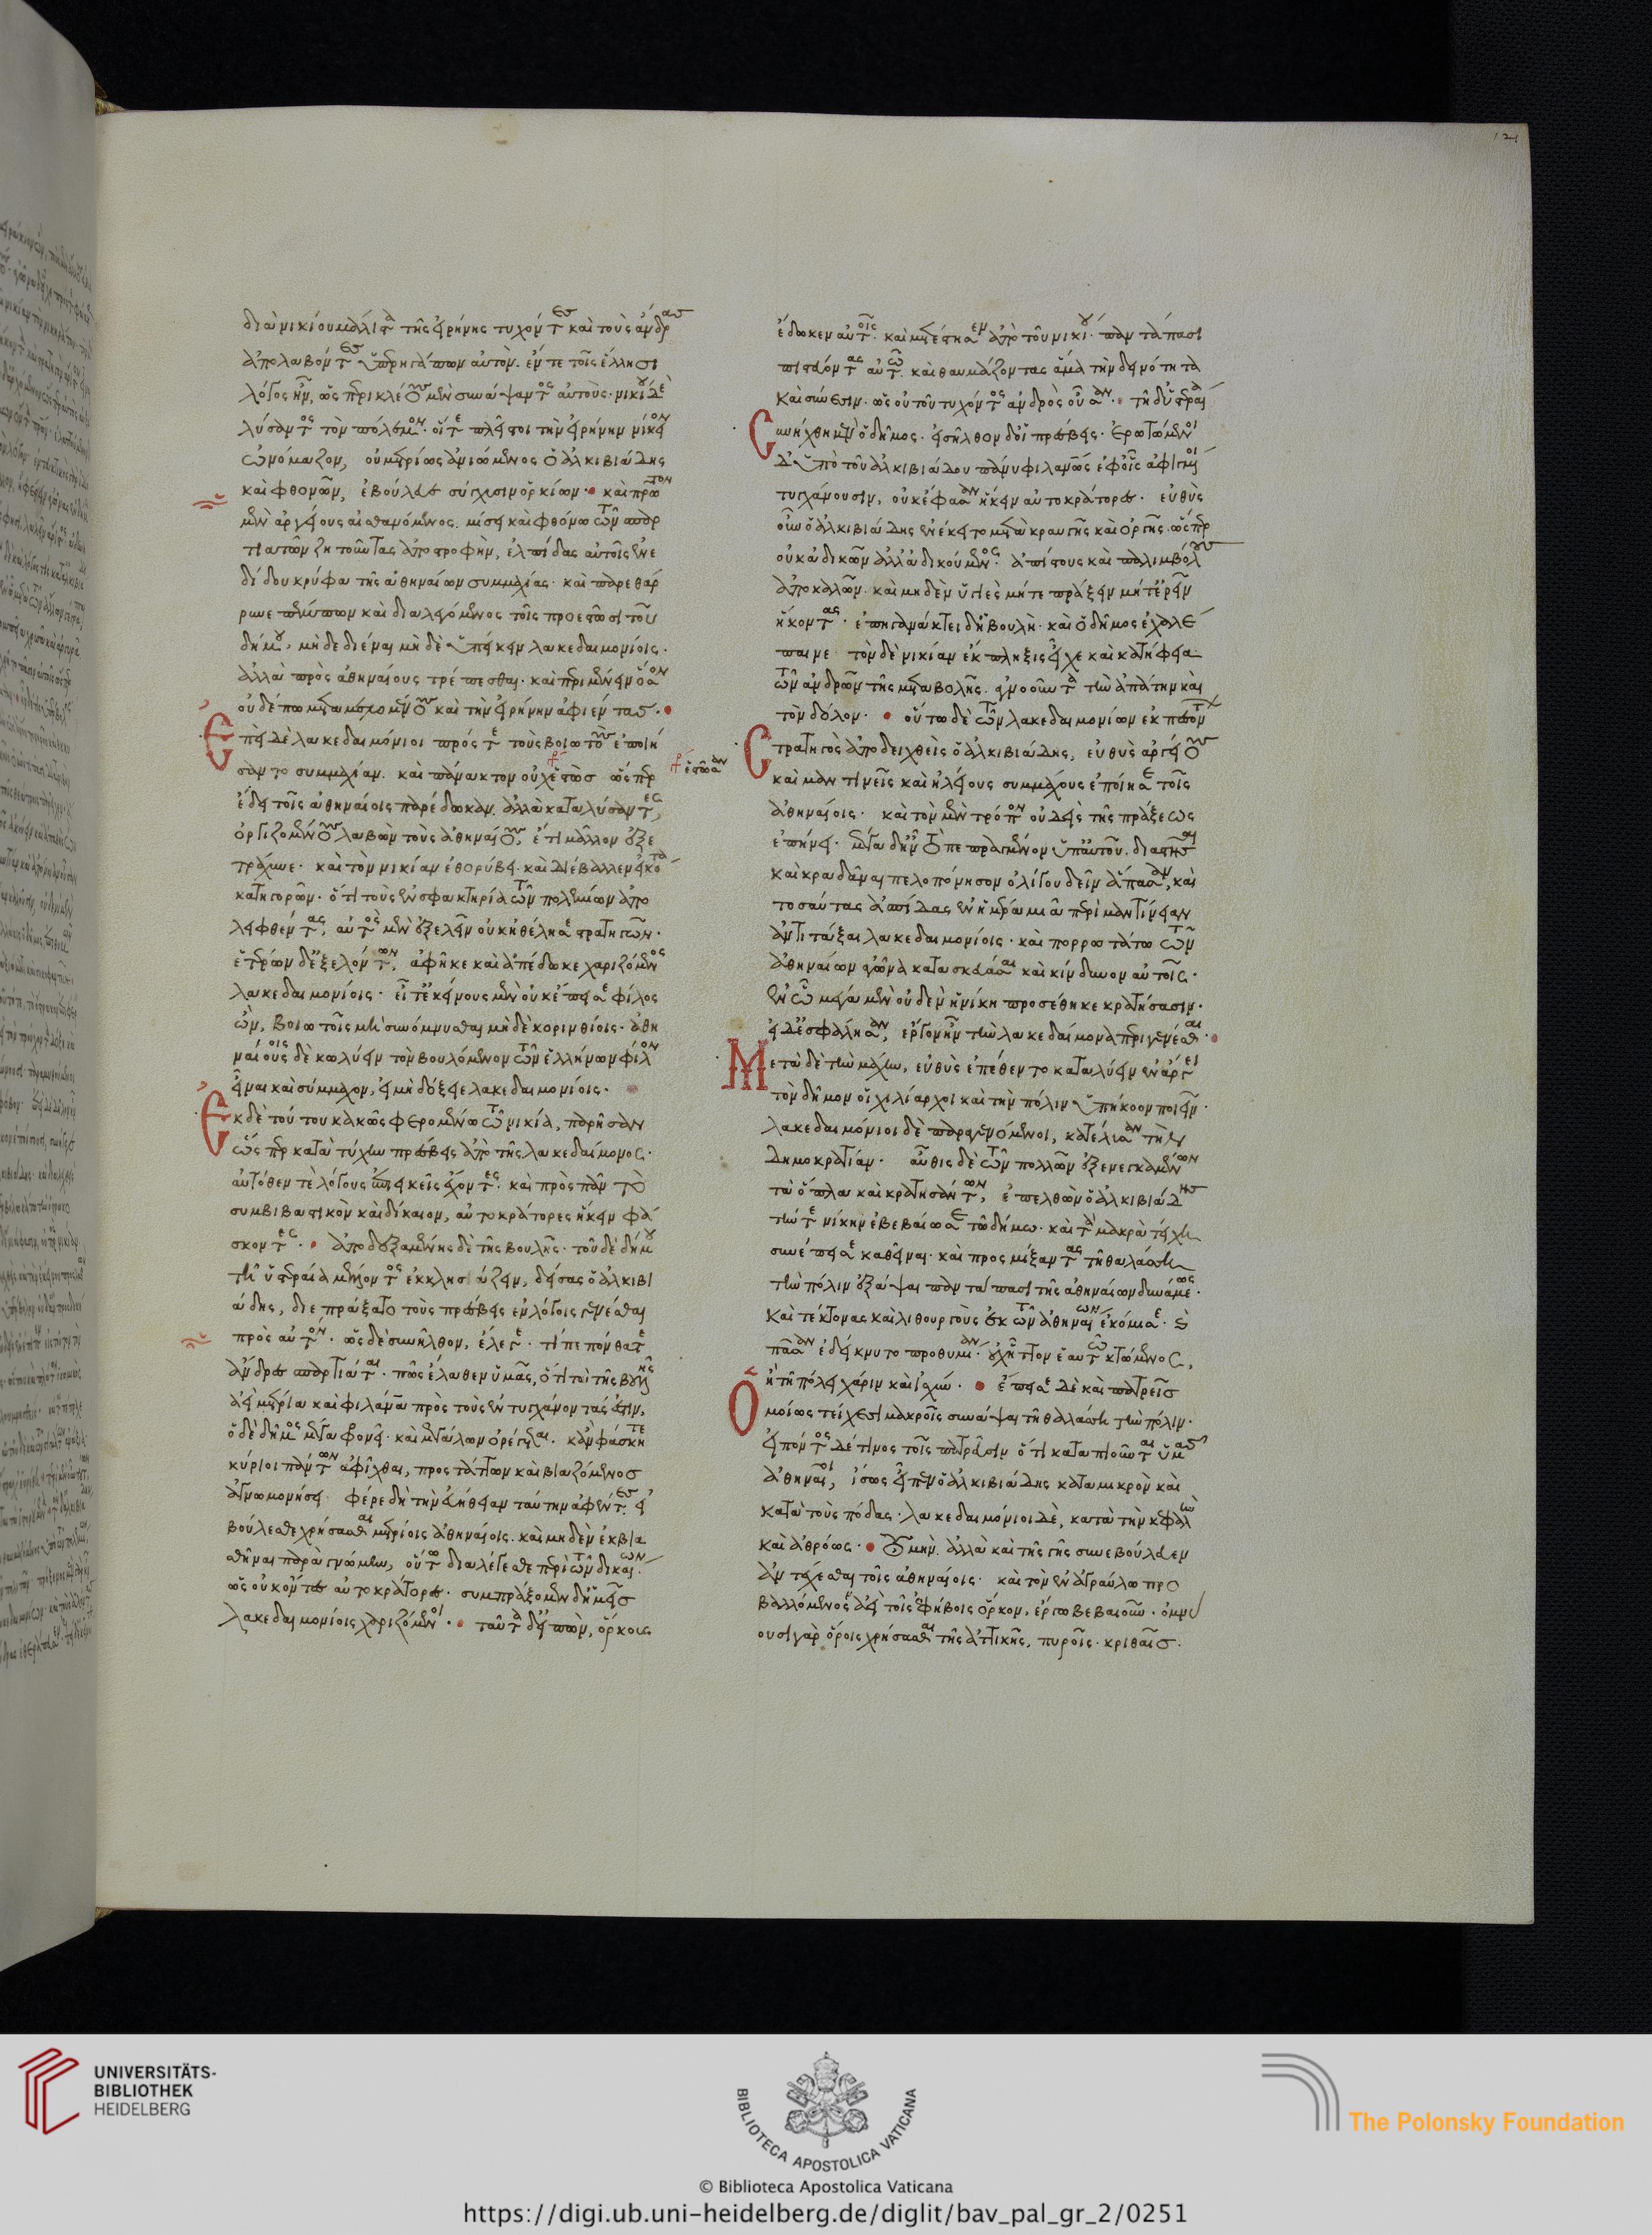 121
διὰ νικίου μάλιστα τῆς εἰρήνης τυχόντες καὶ τοὺς ἄνδρας
ἀπολαβόντες ὑπερηγάπων αὐτόν. ἔν τε τοῖς ἕλλησι
λόγος ἦν, ὡς περικλέους μὲν συνάψαντος αὐτοὺς. νικίου δὲ
λύσαντος τὸν πόλεμον. οἵ τε πλεῖστοι τὴν εἰρήνην νίκειον
ὠνόμαζον, οὐ μετρίως ἀνιώμενος ὁ ἀλκιβιάδης
καὶ φθονῶν, ἐβούλευε σύγχυσιν ὁρκίων. καὶ πρῶτον
μὲν ἀργείους αἰσθανόμενος. μίσει καὶ φθόνω τῶν σπαρ
τιατῶν ζητοῦντας ἀποστροφὴν, ἐλπίδας αὐτοῖς ἐνε
δίδου κρύφα τῆς ἀθηναίων συμμαχίας. καὶ παρεθάρ
ρυνε πέμπων καὶ διαλεγόμενος τοῖς προεστῶσι τοῦ
δήμου, μὴ δεδιέναι μὴ δὲ ὑπείκειν λακεδαιμονίοις.
ἀλλὰ πρὸς ἀθηναίους τρέπεσθαι. καὶ περιμένειν ὅσον
οὐδέπω μεταμελομένους καὶ τὴν εἰρήνην ἀφιέντας.
Ἐπεὶ δὲ λακεδαιμόνιοι πρός τε τοὺς βοιωτοὺς ἐποιή
σαντο συμμαχίαν. καὶ πάνακτον οὐχ ἑστὼς ὥσπερ
ἑστῶσαν
ἔδει τοῖς ἀθηναίοις παρέδωκαν. ἀλλὰ καταλύσαντες,
ὀργιζομένους λαβὼν τοὺς ἀθηναίους, ἔτι μᾶλλον ἐξε
τράχυνε. καὶ τὸν νικίαν ἐθορύβει. καὶ διέβαλλεν εἰκότα
κατηγορῶν. ὅτι τοὺς ἐν σφακτηρία τῶν πολεμίων ἀπο
λειφθέντας, αὐτὸς μὲν ἐξελεῖν οὐκ ἠθέλησε στρατηγῶν.
ἑτέρων δ' ἐξελόντων, ἀφῆκε καὶ ἀπέδωκε χαριζόμενος
λακεδαιμονίοις. εἶτ' ἐκείνους μὲν οὐκ ἔπεισε φίλος
ὢν, βοιωτοῖς μὴ συνόμνυσθαι μὴ δὲ κορινθίοις. ἀθη
ναίους δὲ κωλύειν τὸν βουλόμενον τῶν ἑλλήνων φίλον
εἶναι καὶ σύμμαχον, εἰ μὴ δόξειε λακεδαιμονίοις.
Ἐκ δὲ τούτου κακῶς φερομένω τῶ νικία, παρῆσαν
ὥσπερ κατὰ τύχην πρέσβεις ἀπὸ τῆς λακεδαίμονος.
αὐτόθεν τὲ λόγους ἐπιεικεῖς ἔχοντες. καὶ πρὸς πᾶν τὸ
συμβιβαστικὸν καὶ δίκαιον, αὐτοκράτορες ἥκειν φά
σκοντες. ἀποδεξαμένης δὲ τῆς βουλῆς. τοῦ δὲ δήμου
τῇ ὑστεραία μέλλοντος ἐκκλησιάζειν, δείσας ὁ ἀλκιβι
άδης, διεπράξατο τοὺς πρέσβεις ἐν λόγοις γενέσθαι
πρὸς αὐτόν. ὡς δὲ συνῆλθον, ἔλεγε. τί πεπόνθατε
ἄνδρες σπαρτιάται. πῶς ἔλαθεν ὑμᾶς, ὅτι τὰ τῆς βουλῆς
ἀεὶ μέτρια καὶ φιλάνθρωπα πρὸς τοὺς ἐντυγχάνοντάς ἐστιν,
ὁ δὲ δῆμος μέγα φρονεῖ. καὶ μεγάλων ὀρέγεται. κἂν φάσκητε
κύριοι πάντων ἀφῖχθαι, προστάττων καὶ βιαζόμενος
ἀγνωμονήσει. φέρε δὴ τὴν εὐήθειαν ταύτην ἀφέντες. εἰ
βούλεσθε χρήσασθαι μετρίοις ἀθηναίοις. καὶ μηδὲν ἐκβια
σθῆναι παρὰ γνώμην, οὕτω διαλέγεσθε περὶ τῶν δικαίων.
ὡς οὐκ ὄντες αὐτοκράτορες. συμπράξομεν δ' ἡμεῖς
λακεδαιμονίοις χαριζόμενοι. ταῦτα δ' εἰπὼν, ὅρκους
ἔδωκεν αὐτοῖς. καὶ μετέστησεν ἀπὸ τοῦ νικίου. παντάπασι
πιστεύοντας αὐτῶ. καὶ θαυμάζοντας ἅμα τὴν δεινότητα
καὶ σύνεσιν. ὡς οὐ τοῦ τυχόντος ἀνδρὸς οὖσαν. τῇ δ' ὑστεραία
Συνήχθη μὲν ὁ δῆμος. εἰσῆλθον δ' οἱ πρέσβεις. ἐρωτώμενοι
δ' ὑπὸ τοῦ ἀλκιβιάδου πάνυ φιλανθρώπως ἐφ' οἷς ἀφιγμένοι
τυγχάνουσιν, οὐκ ἔφασαν ἥκειν αὐτοκράτορες. εὐθὺς
οὖν ὁ ἀλκιβιάδης ἐνέκειτο μετὰ κραυγῆς καὶ ὀργῆς. ὥσπερ
οὐκ ἀδικῶν ἀλλ' ἀδικούμενος. ἀπίστους καὶ παλιμβόλους
ἀποκαλῶν. καὶ μηδὲν ὑγιὲς μήτε πράξειν μήτ' ἐρεῖν
ἥκοντας. ἐπηγανάκτει δ' ἡ βουλὴ. καὶ ὁ δῆμος ἐχαλέ
παινε. τὸν δὲ νικίαν ἔκπληξις εἶχε καὶ κατήφεια
τῶν ἀνδρῶν τῆς μεταβολῆς. ἀγνοοῦντα τὴν ἀπάτην καὶ
τὸν δόλον. οὕτω δὲ τῶν λακεδαιμονίων ἐκπεσόντων
Στρατηγὸς ἀποδειχθεὶς ὁ ἀλκιβιάδης, εὐθὺς ἀργείους
καὶ μαντινεῖς καὶ ἠλείους συμμάχους ἐποίησε τοῖς
ἀθηναίοις. καὶ τὸν μὲν τρόπον οὐδεὶς τῆς πράξεως
ἐπήνει. μέγα δ' ἦν τὸ πεπραγμένον ὑπ' αὐτοῦ. διαστῆσαι
καὶ κραδᾶναι πελοπόνησον ὀλίγου δεῖν ἅπασαν, καὶ
τοσαύτας ἀσπίδας ἐν ἡμέρα μιᾶ περὶ μαντίνειαν
ἀντιτάξαι λακεδαιμονίοις. καὶ πορρωτάτω τῶν
ἀθηναίων ἀγῶνα κατασκευάσαι καὶ κίνδυνον αὐτοῖς.
ἐν ᾧ μέγα μὲν οὐδὲν ἡ νίκη προσέθηκε κρατήσασιν.
εἰ δ' ἐσφάλησαν, ἔργον ἦν τὴν λακεδαίμονα περιγενέσθαι.
Μετὰ δὲ τὴν μάχην, εὐθὺς ἐπέθεντο καταλύειν ἐν ἄργει
τὸν δῆμον οἱ χιλίαρχοι καὶ τὴν πόλιν ὑπήκοον ποιεῖν.
λακεδαιμόνιοι δὲ παραγενόμενοι, κατέλυσαν τὴν
δημοκρατίαν. αὖθις δὲ τῶν πολλῶν ἐξενεγκαμένων
τὰ ὅπλα καὶ κρατησάντων, ἐπελθὼν ὁ ἀλκιβιάδης
τήν τε νίκην ἐβεβαίωσε τῶ δήμω. καὶ τὰ μακρὰ τείχη
συνέπεισε καθεῖναι. καὶ προσμίξαντας τῇ θαλάσση
τὴν πόλιν ἐξάψαι παντάπασι τῆς ἀθηναίων δυνάμεως.
καὶ τέκτονας καὶ λιθουργοὺς ἐκ τῶν ἀθηναίων ἐκόμισε. καὶ
πᾶσαν ἐδείκνυτο προθυμίαν. οὐχ ἧττον ἑαυτῶ κτώμενος,
ἢ τῇ πόλει χάριν καὶ ἰσχύν. ἔπεισε δὲ καὶ πατρεῖς
Ὁμοίως τείχεσι μακροῖς συνάψαι τῇ θαλάσση τὴν πόλιν.
εἰπόντος δέ τινος τοῖς πατρεῦσιν ὅτι καταπιοῦνται ὑμᾶς
ἀθηναῖοι, ἴσως εἶπεν ὁ ἀλκιβιάδης κατὰ μικρὸν καὶ
κατὰ τοὺς πόδας. λακεδαιμόνιοι δὲ, κατὰ τὴν κεφαλὴν
καὶ ἀθρόως. οὐ μὴν ἀλλὰ καὶ τῆς γῆς συνεβούλευεν
ἀντέχεσθαι τοῖς ἀθηναίοις. καὶ τὸν ἐν ἀγραύλω προ
βαλλόμενον ἀεὶ τοῖς ἐφήβοις ὅρκον, ἔργω βεβαιοῦν. ὀμνύ
ουσι γὰρ ὅροις χρήσασθαι τῆς ἀττικῆς, πυροῖς. κριθαῖς.
UNIVERSITÄTS-
BIBLIOTHEK
HEIDELBERG
BIBLIOTECA APOSTOLICA VATICANA
The Polonsky Foundation
© Biblioteca Apostolica Vaticana
https://digi.ub.uni-heidelberg.de/diglit/bav_pal_gr_2/0251